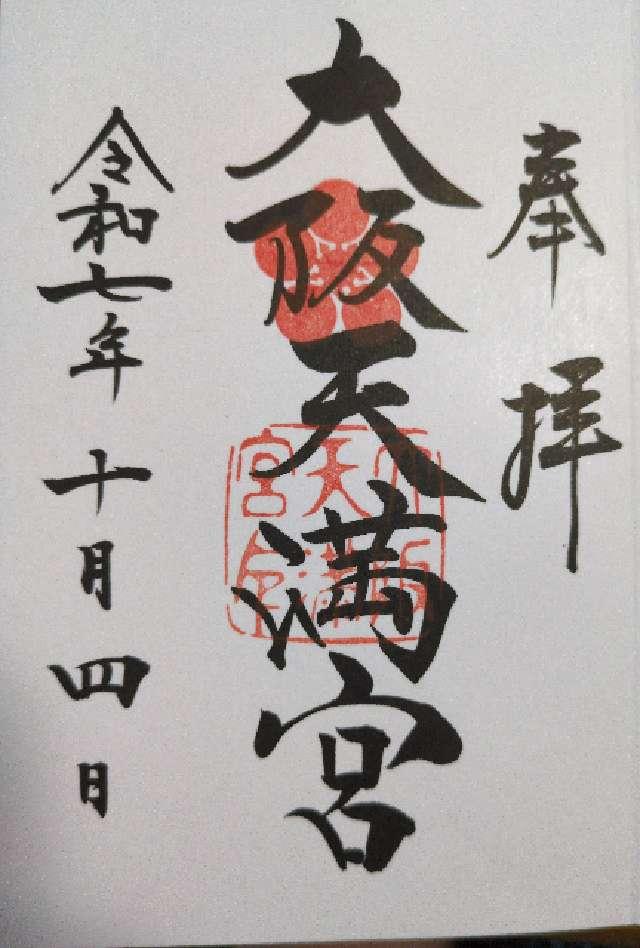 奉拝
大阪天満宮
令和七年十月四日